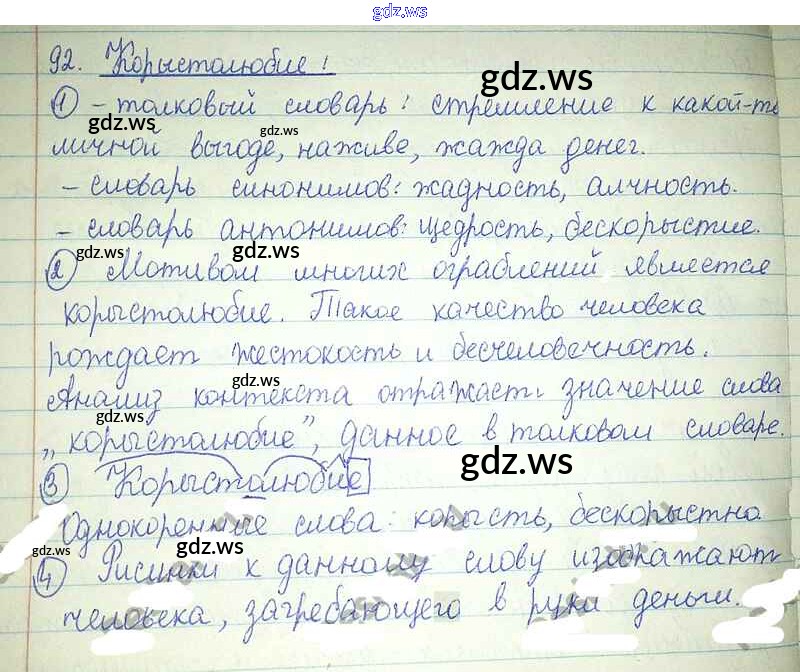 gdz.ws
92. Корыстолюбие!
① – толковый словарь: стремление к какой-то
личной выгоде, наживе, жажда денег.
– словарь синонимов: жадность, алчность.
– словарь антонимов: щедрость, бескорыстие.
② Мотивом многих ограблений является
корыстолюбие. Такое качество человека
рождает жестокость и бесчеловечность.
Анализ контекста отражает значение слова
„корыстолюбие”, данное в толковом словаре.
③ Корыстолюбие
Однокоренные слова: корысть, бескорыстно
④ Рисунки к данному слову изображают
человека, загребающего в руки деньги.
gdz.ws
gdz.ws
gdz.ws
gdz.ws
gdz.ws
gdz.ws
gdz.ws
gdz.ws
gdz.ws
gdz.ws